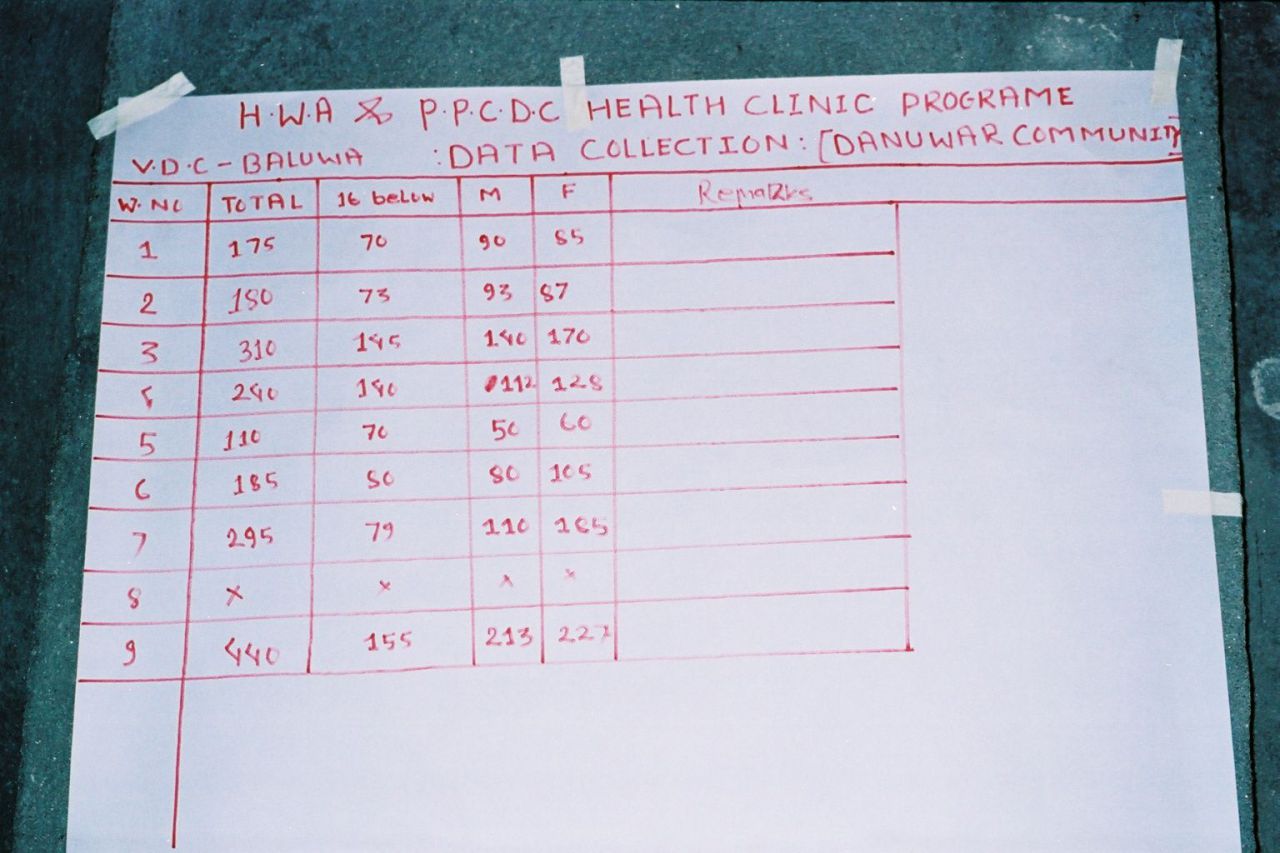 H.W.A & P.P.C.D.C HEALTH CLINIC PROGRAME
V.D.C - BALUWA : DATA COLLECTION : [DANUWAR COMMUNITY]
W. NO TOTAL 16 below M F Remarks
1 175 70 90 85
2 180 73 93 87
3 310 145 140 170
4 240 140 112 128
5 110 70 50 60
6 185 80 80 105
7 295 79 110 185
8 x x x x
9 440 155 213 227